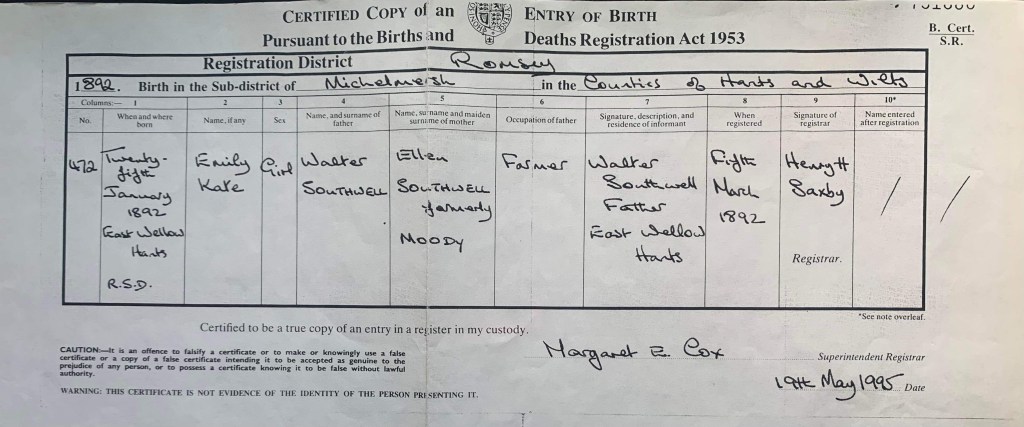 CERTIFIED COPY of an ENTRY OF BIRTH
Pursuant to the Births and Deaths Registration Act 1953
B. Cert.
S.R.
Registration District Romsey
1892. Birth in the Sub-district of Michelmersh in the Counties of Hants and Wilts
Columns:— 1 2 3 4 5 6 7 8 9 10*
No. When and where born Name, if any Sex Name, and surname of father Name, surname and maiden surname of mother Occupation of father Signature, description, and residence of informant When registered Signature of registrar Name entered after registration
472
Twenty-
fifth
January
1892
East Wellow
Hants
R.S.D.
Emily
Kate
Girl
Walter
SOUTHWELL
Ellen
SOUTHWELL
formerly
MOODY
Farmer
Walter
Southwell
Father
East Wellow
Hants
Fifth
March
1892
Henry H
Saxby
Registrar.
/ /
*See note overleaf.
Certified to be a true copy of an entry in a register in my custody.
CAUTION:—It is an offence to falsify a certificate or to make or knowingly use a false
certificate or a copy of a false certificate intending it to be accepted as genuine to the
prejudice of any person, or to possess a certificate knowing it to be false without lawful
authority.
WARNING: THIS CERTIFICATE IS NOT EVIDENCE OF THE IDENTITY OF THE PERSON PRESENTING IT.
Margaret E. Cox Superintendent Registrar
19th May 1995 Date